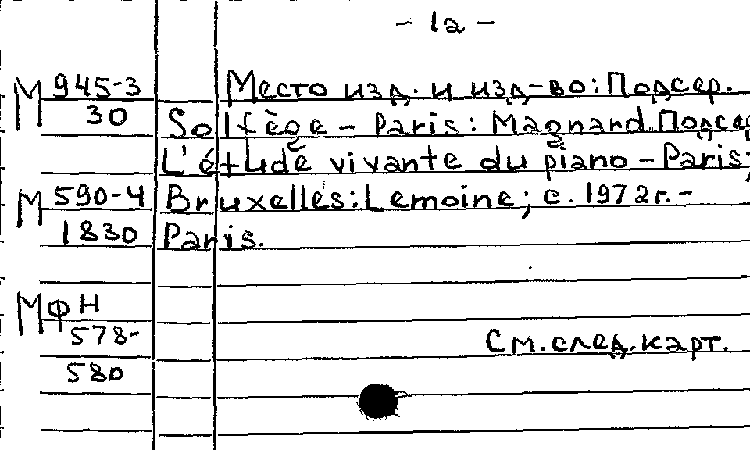 - 1a -
М 945-3 Место изд. и изд-во: Подсер.
30 Solfège - Paris: Magnard. Подсер
L'étude vivante du piano - Paris;
М 590-4 Bruxelles: Lemoine; с. 1972г. -
1830 Paris.
МФН
578-
См. след. карт.
580